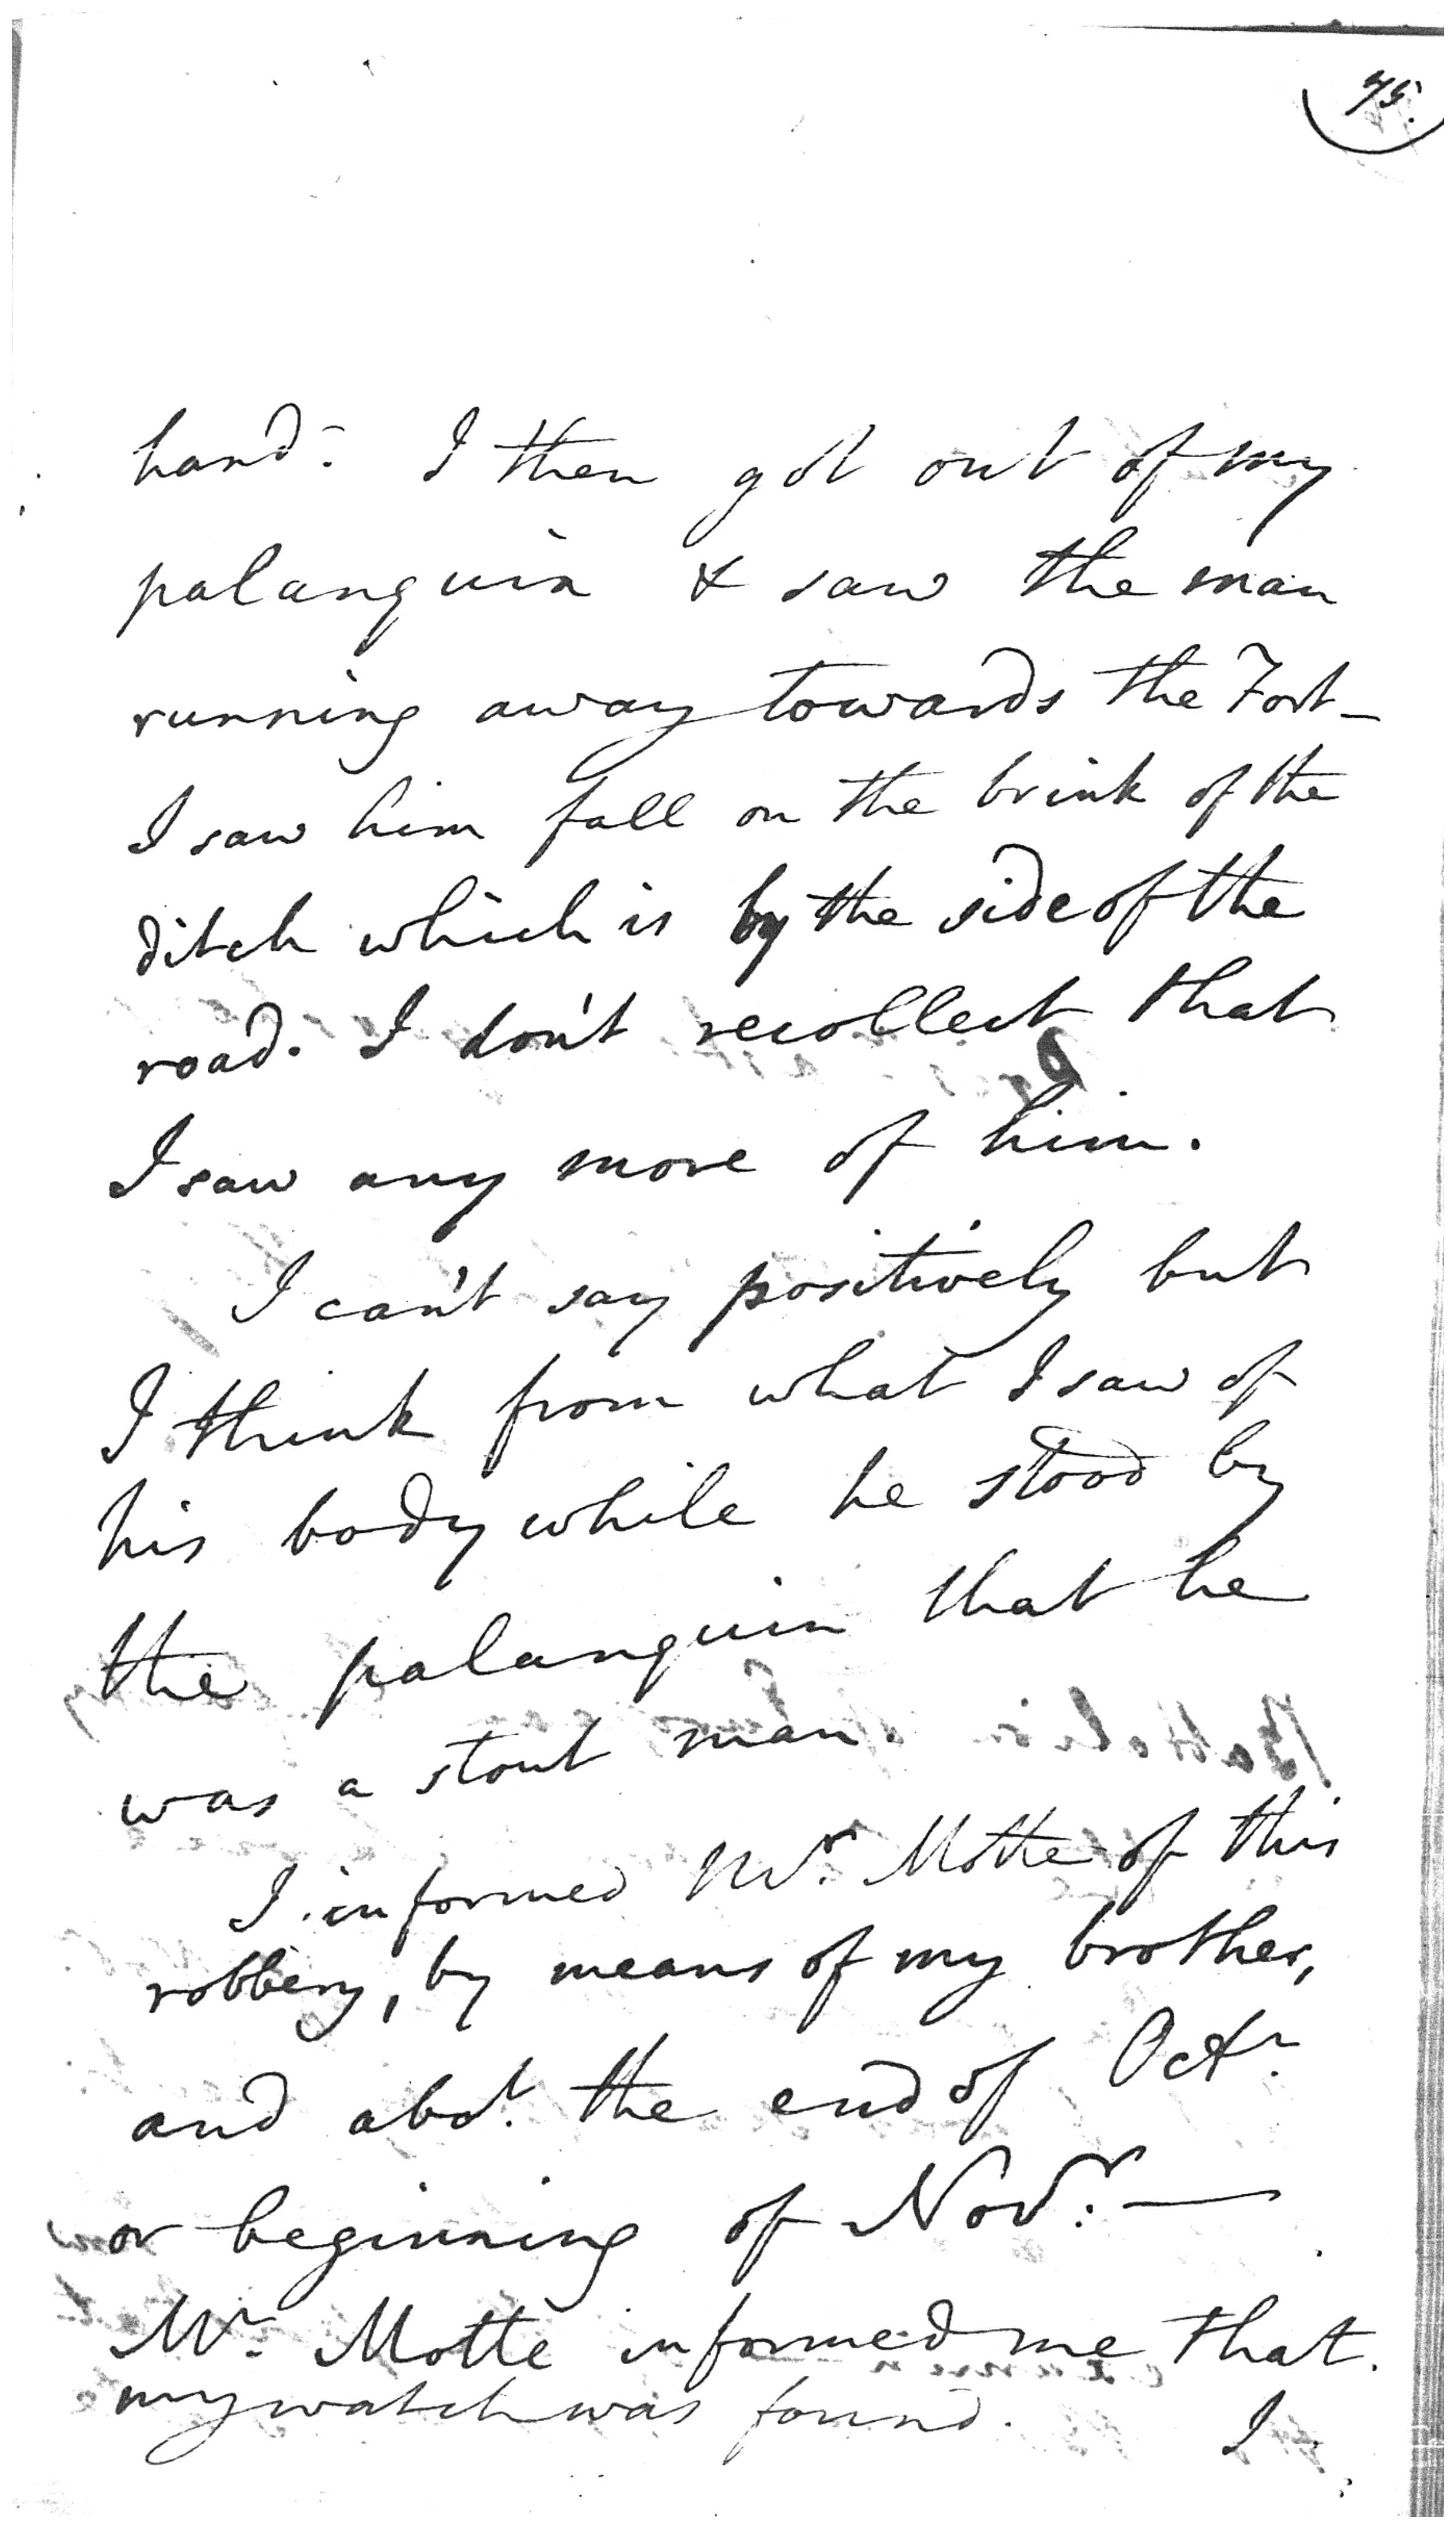 75.
hand. I then got out of my
palanquin & saw the man
running away towards the Fort _
I saw him fall on the brink of the
ditch which is by the side of the
road. I don't recollect that
I saw any more of him.
I can't say positively but
I think from what I saw of
his body while he stood by
the palanquin that he
was a stout man.
I informed Mr. Motte of this
robbery, by means of my brother,
and abot. the end of Octr.
or beginning of Novr. —
Mr. Motte informed me that
my watch was found. I